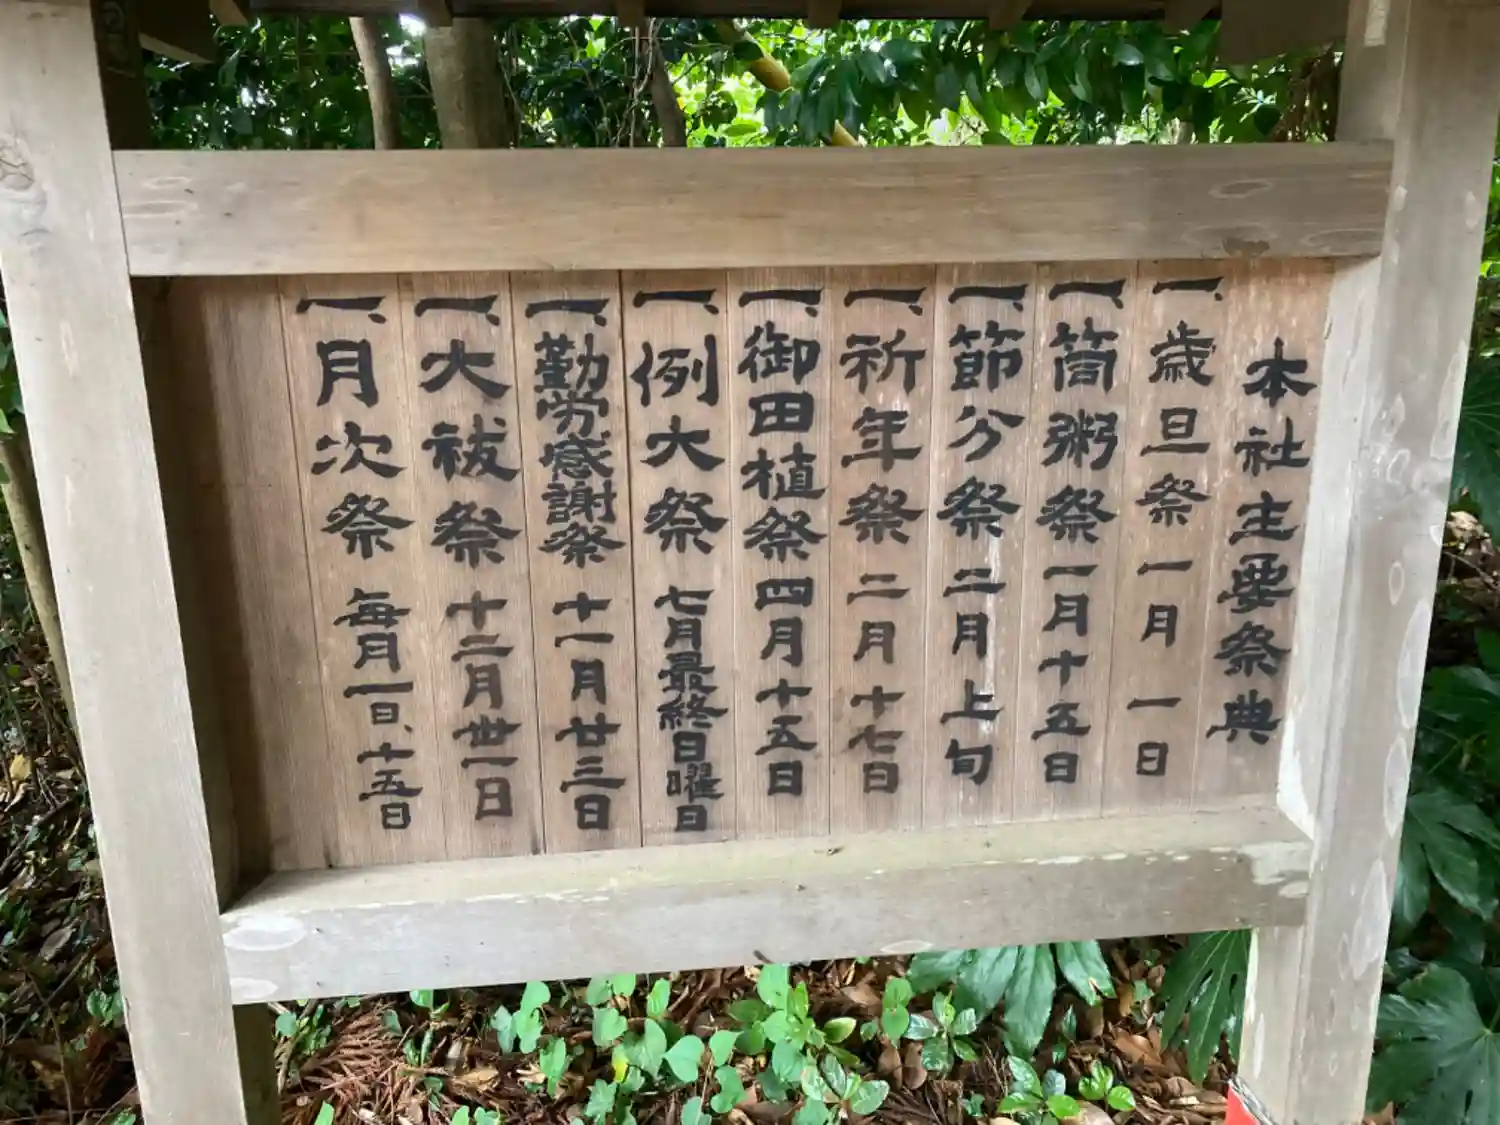 本社主要祭典
一、歳旦祭 一月 一日
一、筒粥祭 一月十五日
一、節分祭 二月上旬
一、祈年祭 二月十七日
一、御田植祭 四月十五日
一、例大祭 七月最終日曜日
一、勤労感謝祭 十一月廿三日
一、大祓祭 十二月丗一日
一、月次祭 毎月一日、十五日